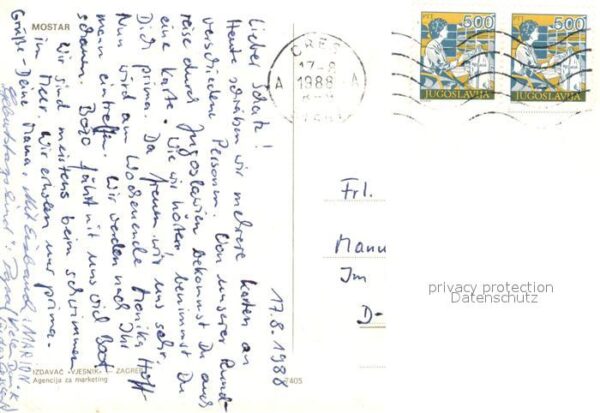 MOSTAR
17.8.1988
Lieber Schatz!
Heute schreiben wir mehrere Karten an
verschiedene Personen. Von unserer Rund-
reise durch Jugoslawien bekommst Du auch
eine Karte. Wie wir hören, benimmst Du
Dich prima. Da freuen wir uns sehr.
Nun wird am Wochenende Monika Hoff-
mann eintreffen. Wir werden nach Ihr
schauen. Bozo fährt mit uns viel Boot
Wir sind meistens beim schwimmen
im Meer. Wir erholen uns prima.
Grüße - Deine Mama.
Geburtstagskind
IZDAVAČ »VJESNIK« ZAGREB
Agencija za marketing
7405
CRES
17-8
1988
A A
PTT 500
JUGOSLAVIJA
PTT 500
JUGOSLAVIJA
Frl.
Manu
Im
D-
privacy protection
Datenschutz